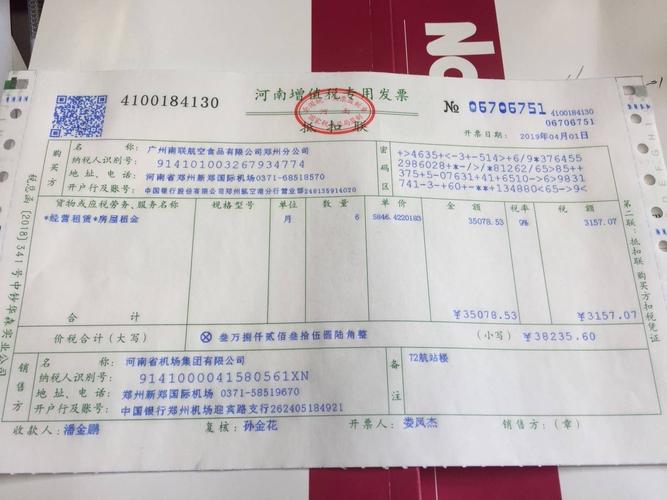 No
4100184130
河南增值税专用发票
抵扣联
№ 06706751
4100184130
06706751
开票日期: 2019年04月01日
购买方
名 称: 广州南联航空食品有限公司郑州分公司
纳税人识别号: 914101003267934774
地 址、电 话: 河南省郑州新郑国际机场0371-68518570
开户行及账号: 中国银行股份有限公司郑州航空港分行营业部248135914020
密码区
+>4635+<-3+-514>+6/9*376455
2986028+*-/>/*81262/65>85++
375+5-07631+41+6510->+9831
741-3-+60+-**+134880<65->9<
货物或应税劳务、服务名称 规格型号 单位 数 量 单 价 金 额 税率 税 额
*经营租赁*房屋租金 月 6 5846.4220183 35078.53 9% 3157.07
合 计 ¥35078.53 ¥3157.07
价税合计(大写) ⊗ 叁万捌仟贰佰叁拾伍圆陆角整 (小写) ¥38235.60
销售方
名 称: 河南省机场集团有限公司
纳税人识别号: 9141000041580561XN
地 址、电 话: 郑州新郑国际机场 0371-58519670
开户行及账号: 中国银行郑州机场迎宾路支行262405184921
备注
T2航站楼
收款人: 潘金鹏 复核: 孙金花 开票人: 娄凤杰 销售方: (章)
税总函[2018]341号中钞华森实业公司
第二联:抵扣联 购买方扣税凭证